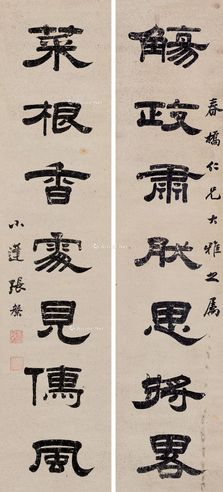 春橋仁兄大雅之属
觴政肅時思將畧
菜根香處見儒風
小蓬張槃